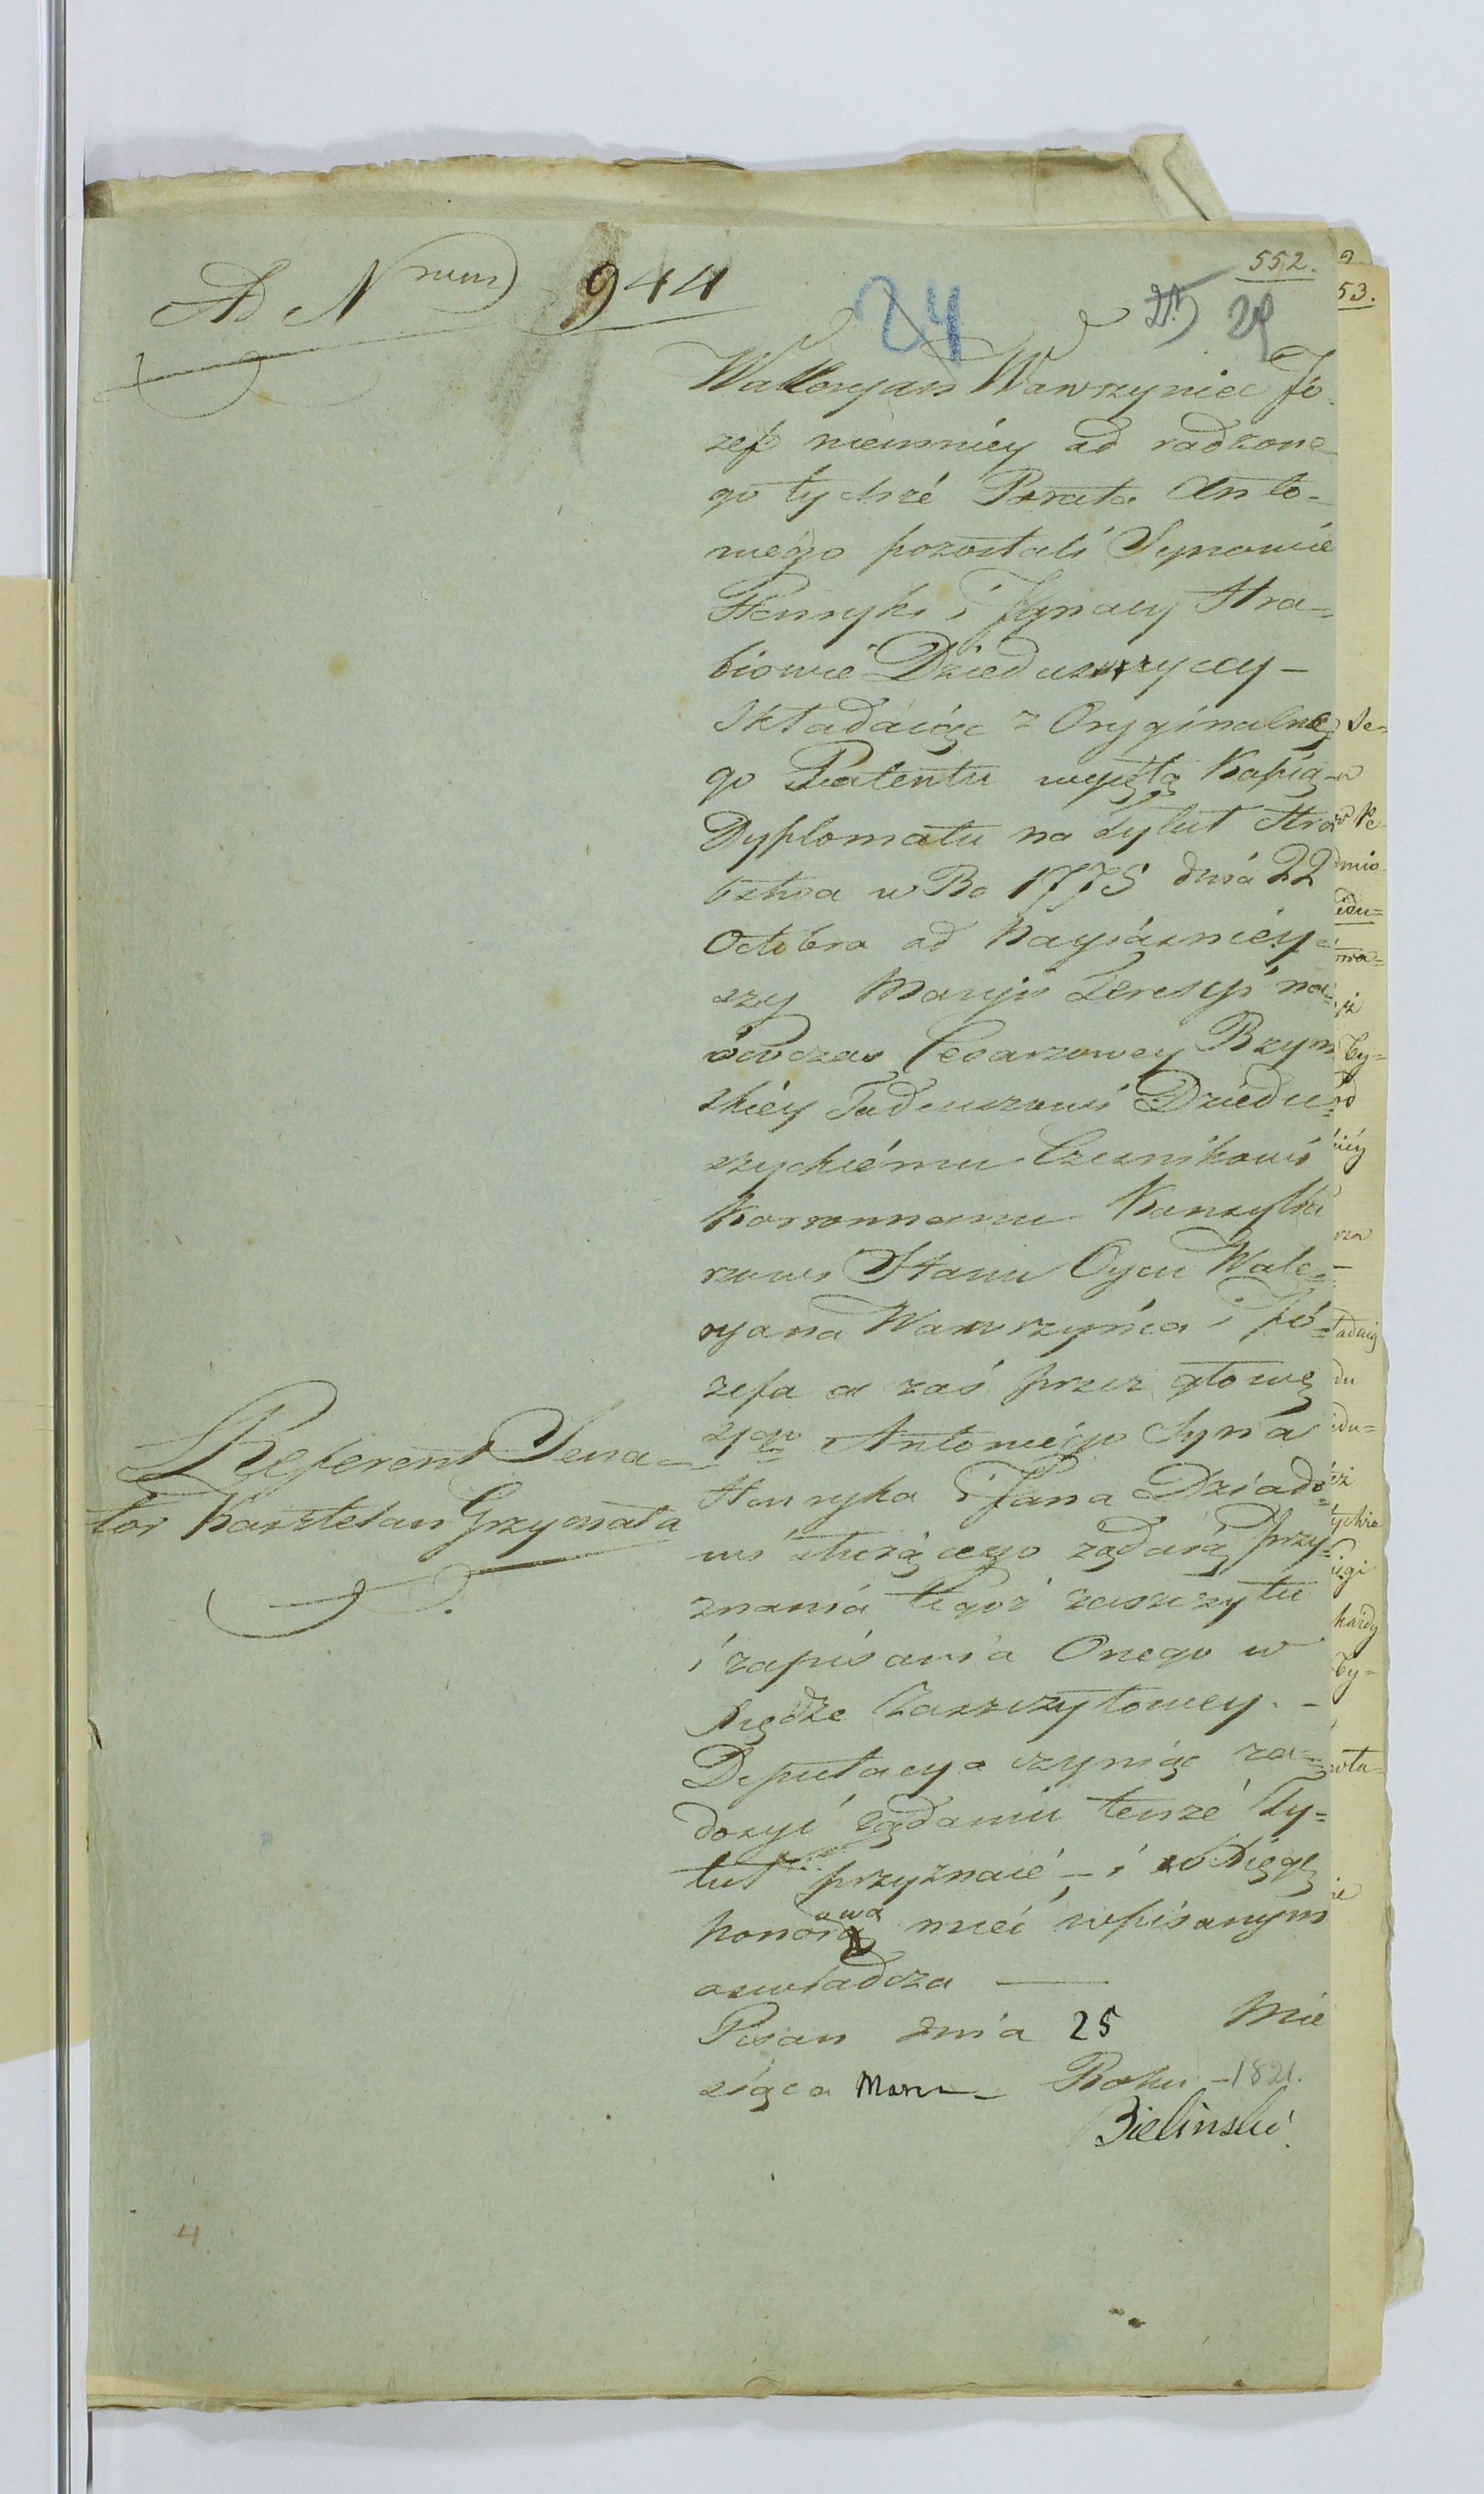 552.
Ad Nrum 944
24
25 28
Walleryan Wawrzyniec Jó-
zef niemniéy od rodzone-
go tychzé Brata Anto-
niego pozostali Synowie
Henryk i Ignacy Hra-
biowie Dzieduszyccy -
Składaiąc z Oryginalne-
go Patentu wyiętą Kopią
Dyplomatu na Tytuł Hra-
bstwa w Ro 1775 dniá 22
Octobra od Nayiásniéy-
szy Maryi Teresyi na-
ówczas Cesarzowey Rzym
skiéy Tadeuszowi Dziedu-
szyckiému Czesnikowi
Koronnemu Konsylia
rzowi Stanu Oycu Wale-
ryana Wawrzyńca i Jó-
zefa a zaś przez głowę
Antoniégo Syna
Henryka i Jana Dziado-
wi żądaią przy-
znaniá tegoż zaszczytu
i zapisania Onego w
Xiędze Zaszczytowey. -
Deputacya czyniąc za-
dosyć żądaniu tenże Ty-
tuł przyznaié - i w Xięgę
honorową mieć wpisanym
oswiadcza -
Pisan dnia 25 Mie
siąca Marca Roku - 1821.
Bielinski
Referent Sena-
tor Kasztelan Grzymała
4
53.